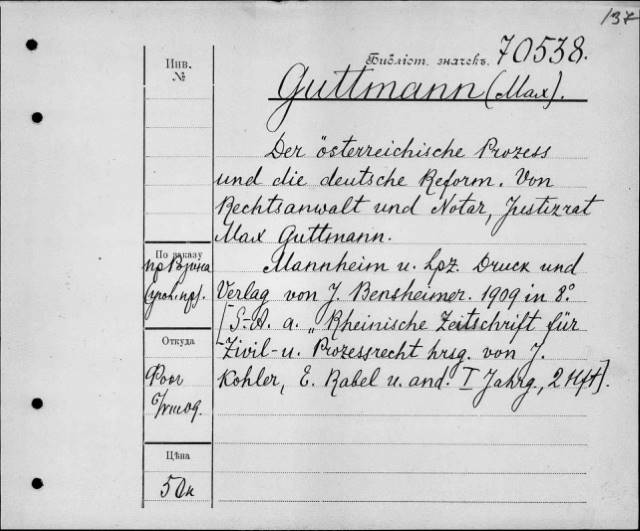 137
Инв.
№
Библіот. значекъ. 70538.
Guttmann (Max).
Der österreichische Prozess
und die deutsche Reform. Von
Rechtsanwalt und Notar, Justizrat
Max Guttmann.
Mannheim u. Lpz. Druck und
Verlag von J. Bensheimer. 1909 in 8°.
[S.-A. a. „Rheinische Zeitschrift für
Zivil- u. Prozessrecht hrsg. von J.
Kohler, E. Rabel u. and. I Jahrg., 2 Hft].
По заказу
Откуда
Фоог
Цѣна
50к